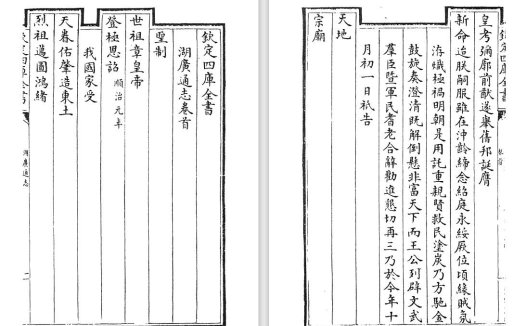 欽定四庫全書
湖廣通志卷首
聖制
世祖章皇帝
登極恩詔 順治元年
我國家受
天眷佑肇造東土
烈祖邁圖鴻緒
欽定四庫全書
湖廣通志
皇考彌廓前猷遂舉舊邦誕膺
新命迨朕嗣服雖在沖齡締念紹庭永綏厥位頃緣賊氛
洊熾極禍明朝是用託重親賢救民塗炭乃方馳金
鼓旋奏澄清既解倒懸非富天下而王公列辟文武
羣臣暨軍民耆老合辭勸進懇切再三乃於今年十
月初一日祗告
天地
宗廟